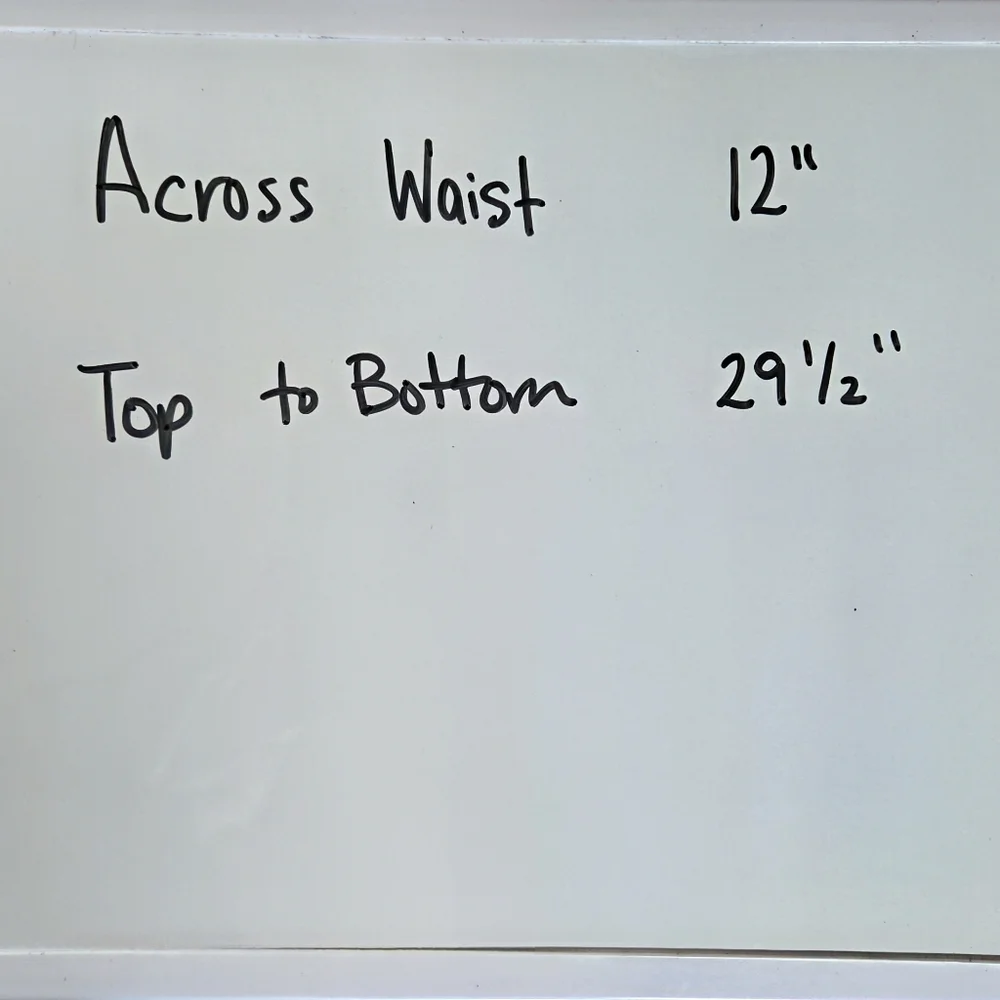 Across Waist 12"
Top to Bottom 29 1/2"